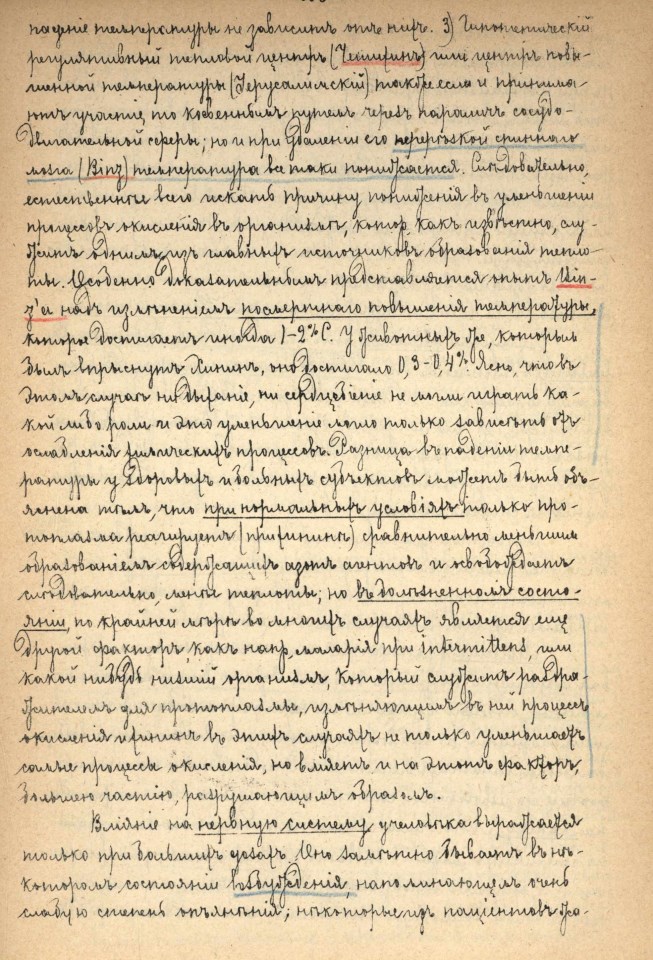 паденіе температуры не зависитъ отъ нихъ. 3) Гипотетическій
регулятивный тепловой центръ (Чешихинъ) или центръ повы-
шенной температуры (Іерусалимскій) также если и принима-
ютъ участіе, то косвеннымъ путемъ черезъ параличъ сосудо-
двигательной сферы; но и при удаленіи его перерѣзкой спиннаго
мозга (Binz) температура все таки понижается. Слѣдовательно,
естественнѣе всего искать причину пониженія въ уменьшеніи
процессовъ окисленія въ организмѣ, котор. какъ извѣстно, слу-
жатъ однимъ изъ главныхъ источниковъ образованія тепло-
ты. Особенно доказательнымъ представляется опытъ Bin-
z'a надъ измѣненіемъ посмертнаго повышенія температуры,
которое достигаетъ иногда 1-2% С. У животныхъ же, которымъ
былъ впрыснутъ хининъ, оно достигало 0,3-0,4%. Ясно, что въ
этомъ случаѣ ни дыханіе, ни сердцебіеніе не могли играть ка-
кой либо роли и это уменьшеніе могло только зависѣть отъ
ослабленія химическихъ процессовъ. Разница въ паденіи темпе-
ратуры у здоровыхъ и больныхъ субъектовъ можетъ быть объ-
яснена тѣмъ, что при нормальныхъ условіяхъ только про-
топлазма реагируетъ (при хининѣ) сравнительно меньшимъ
образованіемъ содержащихъ азотъ агентовъ и освобождаетъ
слѣдовательно, менѣе теплоты; но въ болѣзненномъ состо-
яніи, по крайней мѣрѣ во многихъ случаяхъ является еще
другой факторъ, какъ напр. маларія при intermittens, или
какой нибудь низшій организмъ, который служитъ раздра-
жителемъ для протоплазмы, измѣняющимъ въ ней процессъ
окисленія и хининъ въ этихъ случаяхъ не только уменьшаетъ
самые процессы окисленія, но вліяетъ и на этотъ факторъ,
большею частію, разрушающимъ образомъ.
Вліяніе на нервную систему у человѣка выражается
только при большихъ дозахъ. Оно замѣтно бываетъ въ нѣ-
которомъ состояніи возбужденія, напоминающемъ очень
слабую степень опьянѣнія; нѣкоторые изъ паціентовъ жа-